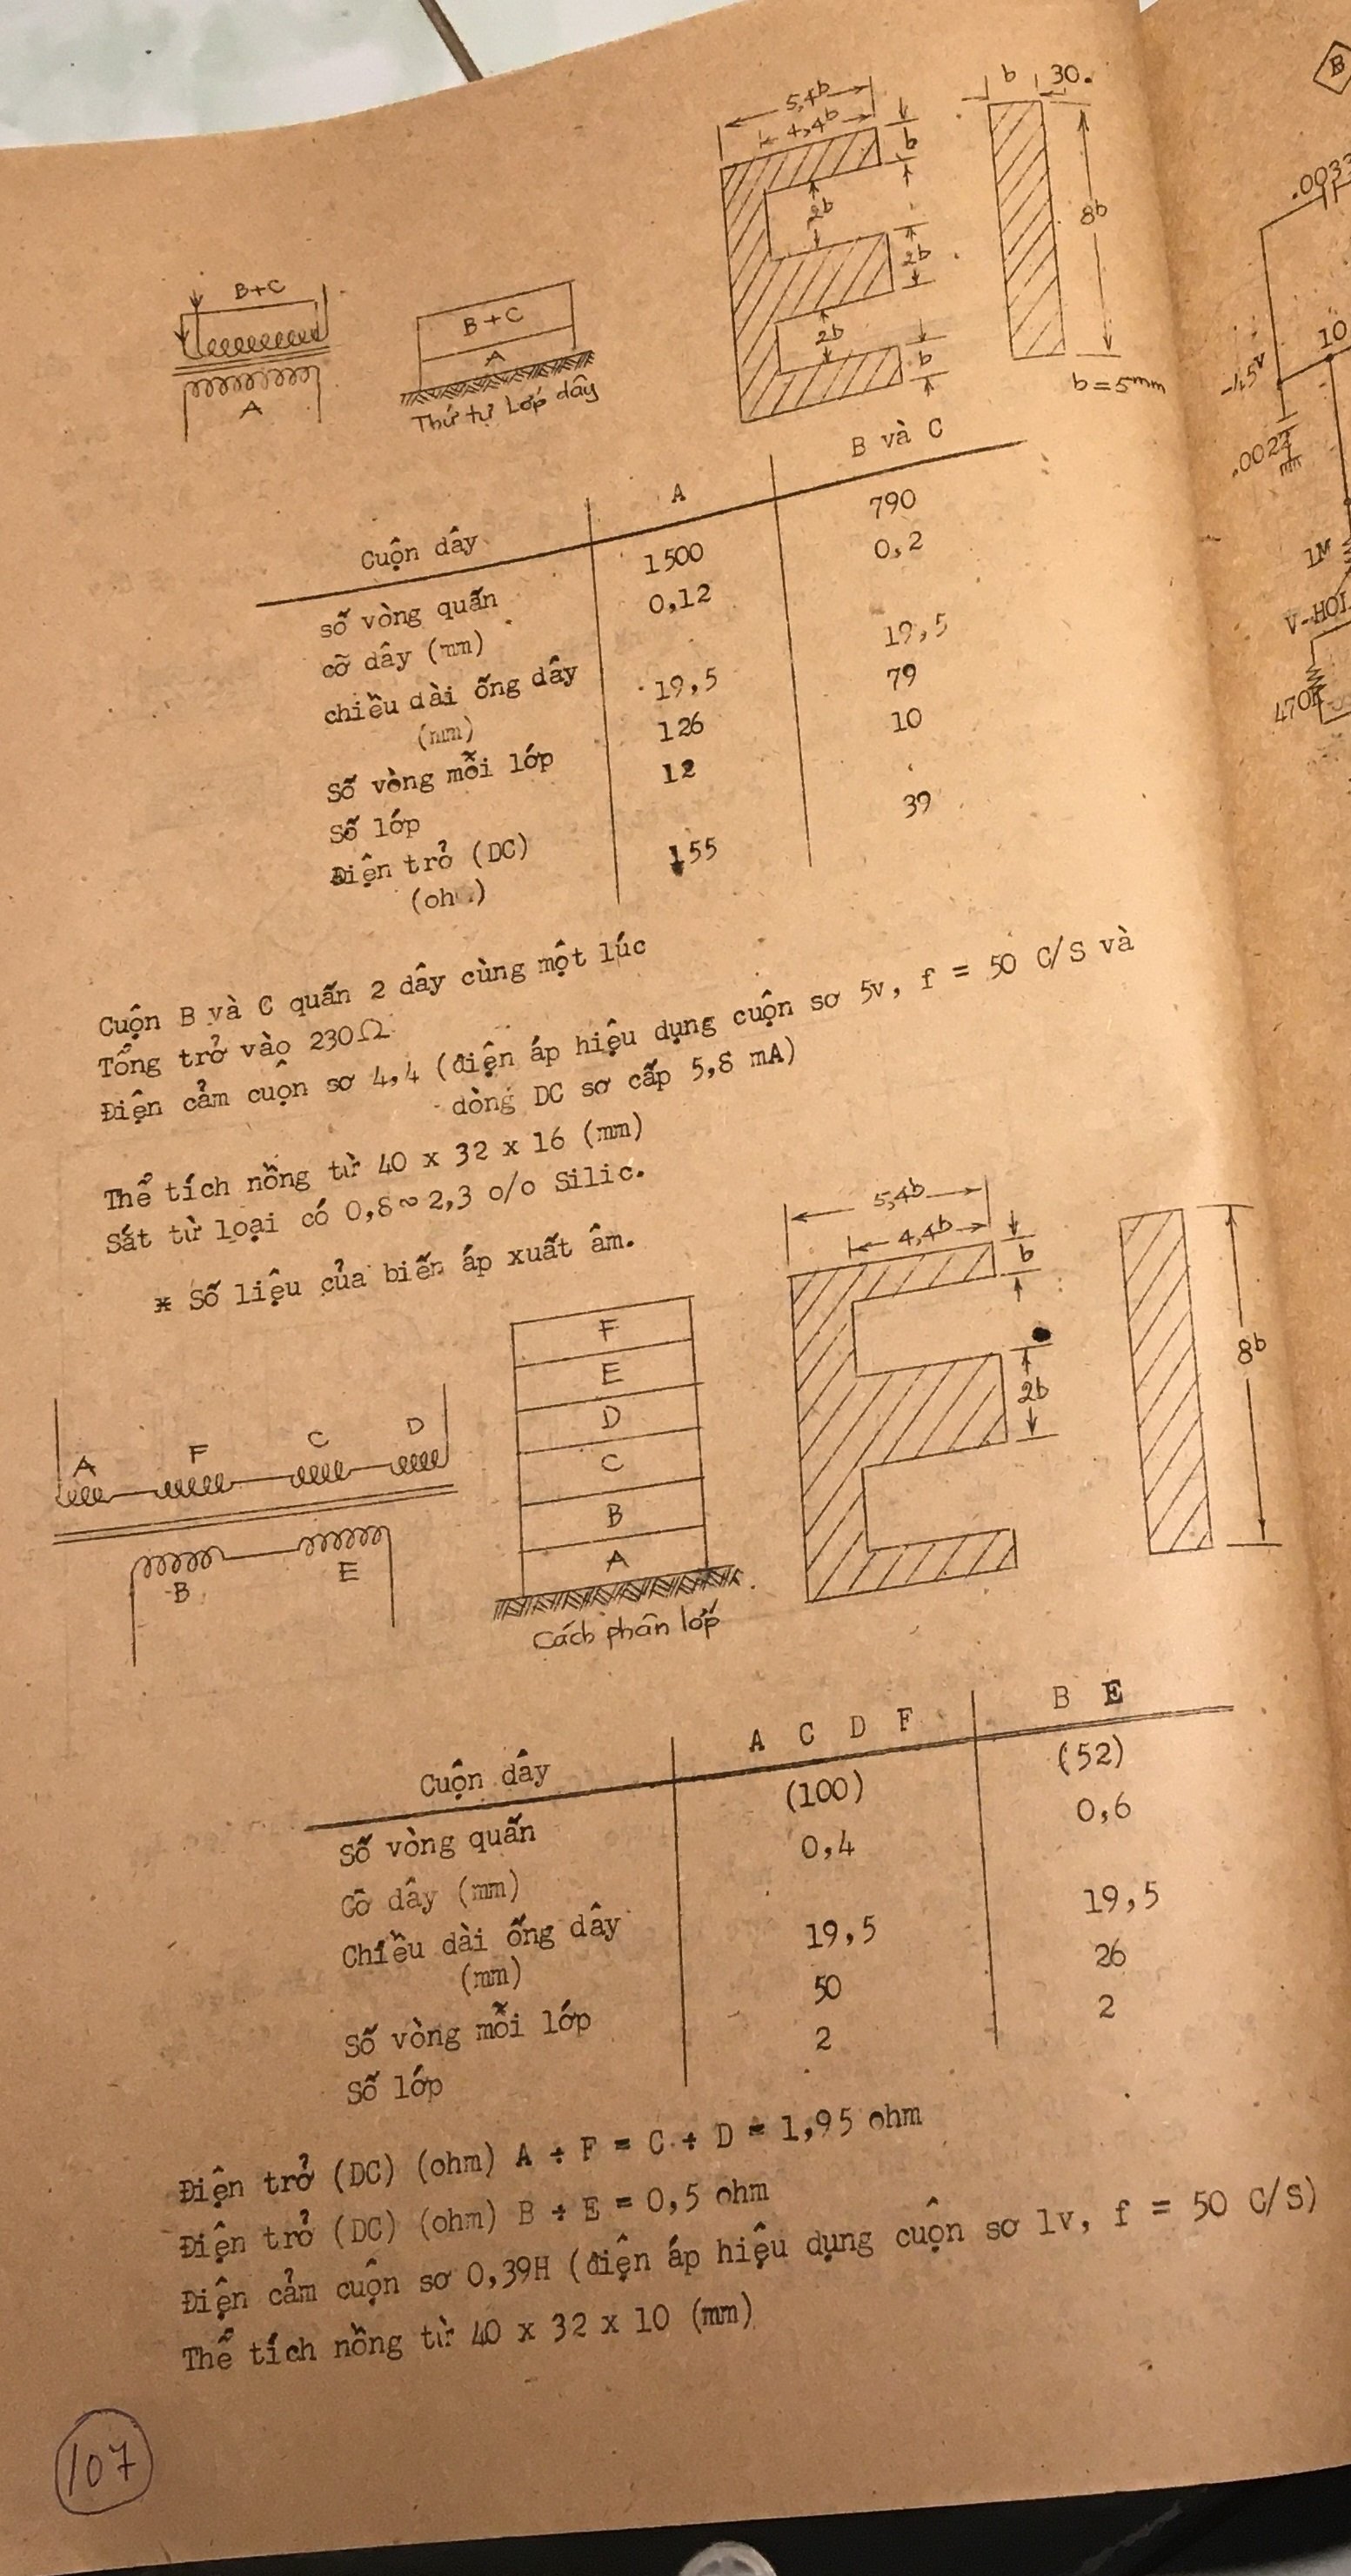 5,4b
4,4b
b
2b
2b
2b
b
b 30.
8b
b = 5mm
B+C
A
B+C
A
Thứ tự Lớp dây
Cuộn dây A B và C
số vòng quấn 1500 790
cỡ dây (mm) 0,12 0,2
chiều dài ống dây
(mm) 19,5 19,5
Số vòng mỗi lớp 126 79
Số lớp 12 10
Điện trở (DC)
155 39
Cuộn B và C quấn 2 dây cùng một lúc
Tổng trở vào 230Ω
Điện cảm cuộn sơ 4,4 (điện áp hiệu dụng cuộn sơ 5v, f = 50 C/S và
dòng DC sơ cấp 5,8 mA)
Thể tích nồng từ 40 x 32 x 16 (mm)
Sắt từ loại có 0,8~2,3 o/o Silic.
* Số liệu của biến áp xuất âm.
5,4b
4,4b
b
2b
8b
A F C D
B E
F
E
D
C
B
A
Cách phân lớp
Cuộn dây A C D F B E
Số vòng quấn (100) (52)
Cỡ dây (mm) 0,4 0,6
Chiều dài ống dây
(mm) 19,5 19,5
Số vòng mỗi lớp 50 26
Số lớp 2 2
Điện trở (DC) (ohm) A + F = C + D = 1,95 ohm
Điện trở (DC) (ohm) B + E = 0,5 ohm
Điện cảm cuộn sơ 0,39H (điện áp hiệu dụng cuộn sơ 1v, f = 50 C/S)
Thể tích nồng từ 40 x 32 x 10 (mm)
107
B
.0033
-1,5V
10
.0022
1M